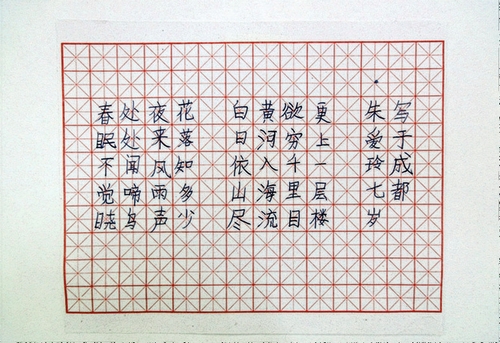 春眠不觉晓
处处闻啼鸟
夜来风雨声
花落知多少
白日依山尽
黄河入海流
欲穷千里目
更上一层楼
朱爱玲七岁
写于成都